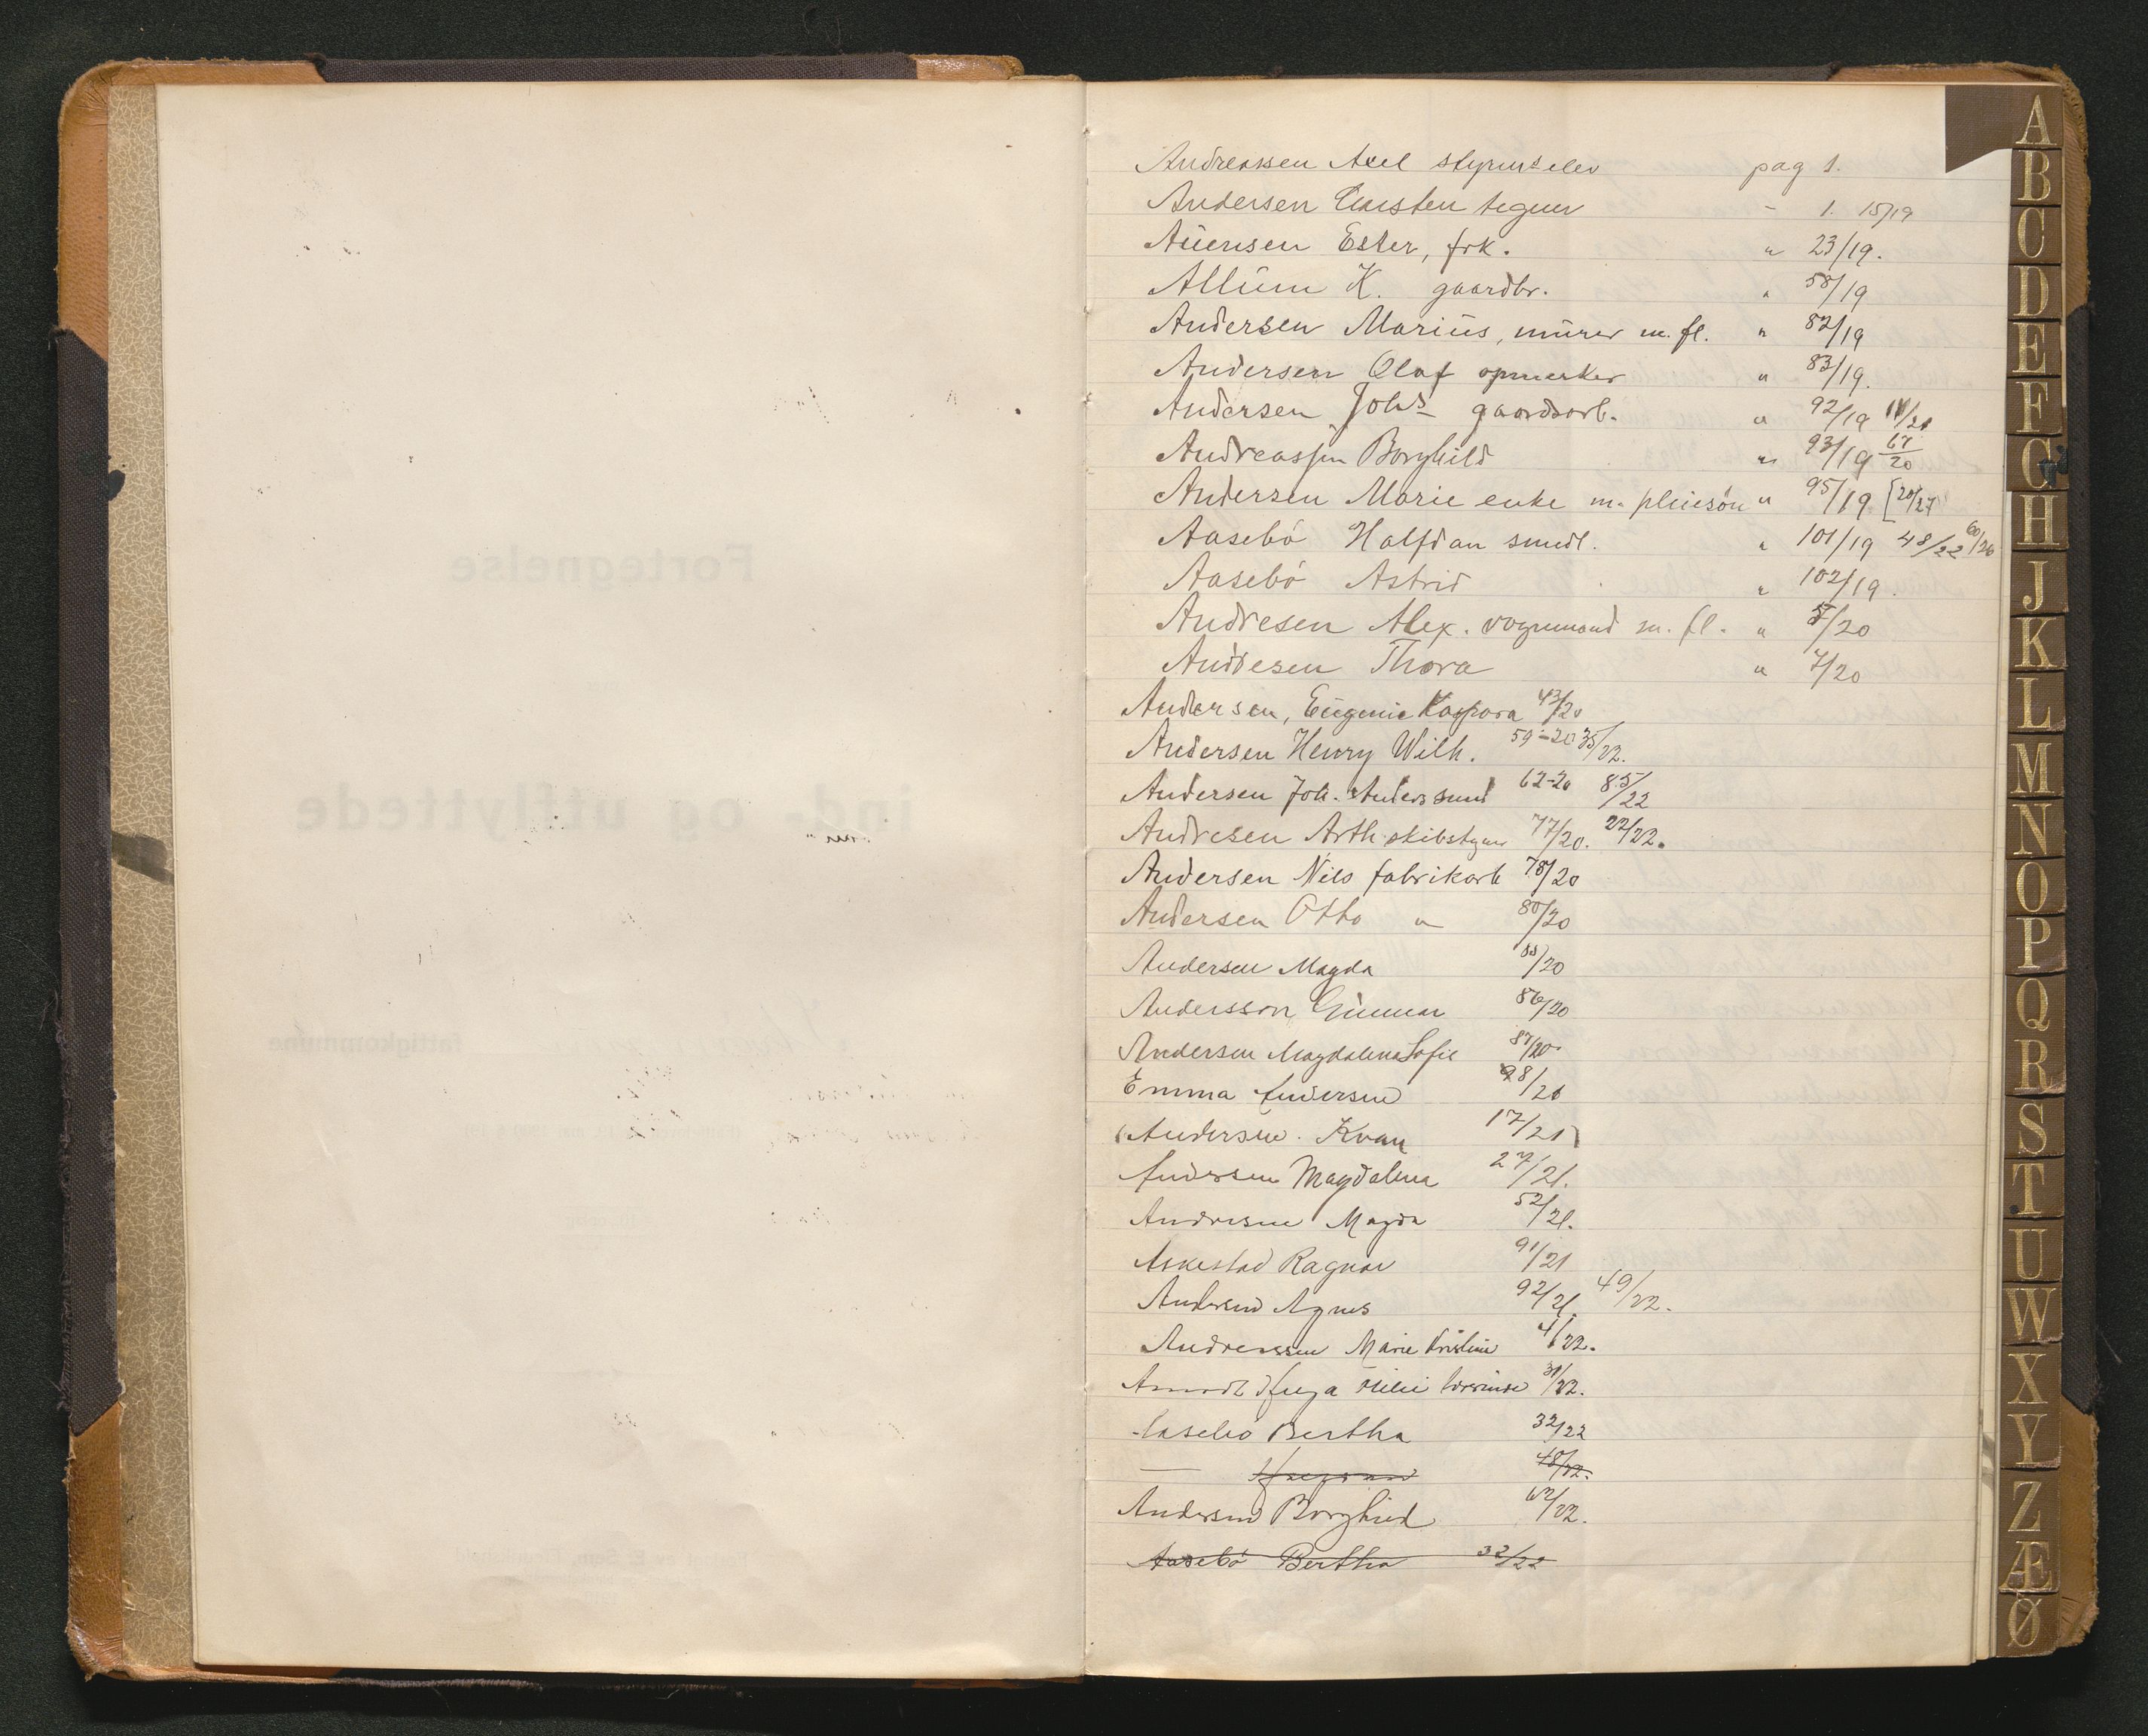 Fortegnelse
ind- og utflyttede
fattigkommune
Andreassen Axel styrmselev pag 1.
Andersen Carsten tegner - 1. 15/19
Ester, frk. " 23/19.
Allum K. gaardbr. " 58/19
Andersen Marius, murer m. fl. " 82/19
Andersen Olaf opmerker " 83/19.
Andersen Johs gaardsarb. " 92/19 11/21
Andreassen Borghild " 93/19 67/20
Andersen Marie enke m. pleiesøn " 95/19 [20/27
Aasebö Halfdan smedl. " 101/19 48/22 60/26
Aasebö Astrid " 102/19.
Andresen Alex. vognmand m. fl. " 5/20
Andresen Thora " 7/20
Andersen, Eugenie Kaspara 43/20
Andersen Henry Wilh. 59-20 35/22.
Andersen Joh. Anders smed 62-20 85/22
Andresen Arth skibstgner 77/20. 22/22.
Andersen Nils fabrikarb 78/20
Andersen Otto " 80/20
Andersen Magda /20
Andersson Gunnar 86/20
Andersen Magdalena Sofie 87/20
Emma Andersen 98/20
(Andersen. Kvan 17/21)
Andersen Magdalena 27/21.
Andresen Magda 52/21.
Askestad Ragnar 91/21
Andersen Agnes 92/21. 49/22.
Andreassen Marie Kristine 4/22.
31/22.
Aasebö Bertha 32/22
— 48/22.
Andersen Borghild 62/22.
Aasebö Bertha 32/22
A
B
C
D
E
F
G
H
J
K
L
M
N
O
P
Q
R
S
T
U
W
X
Y
Z
Æ
Ø